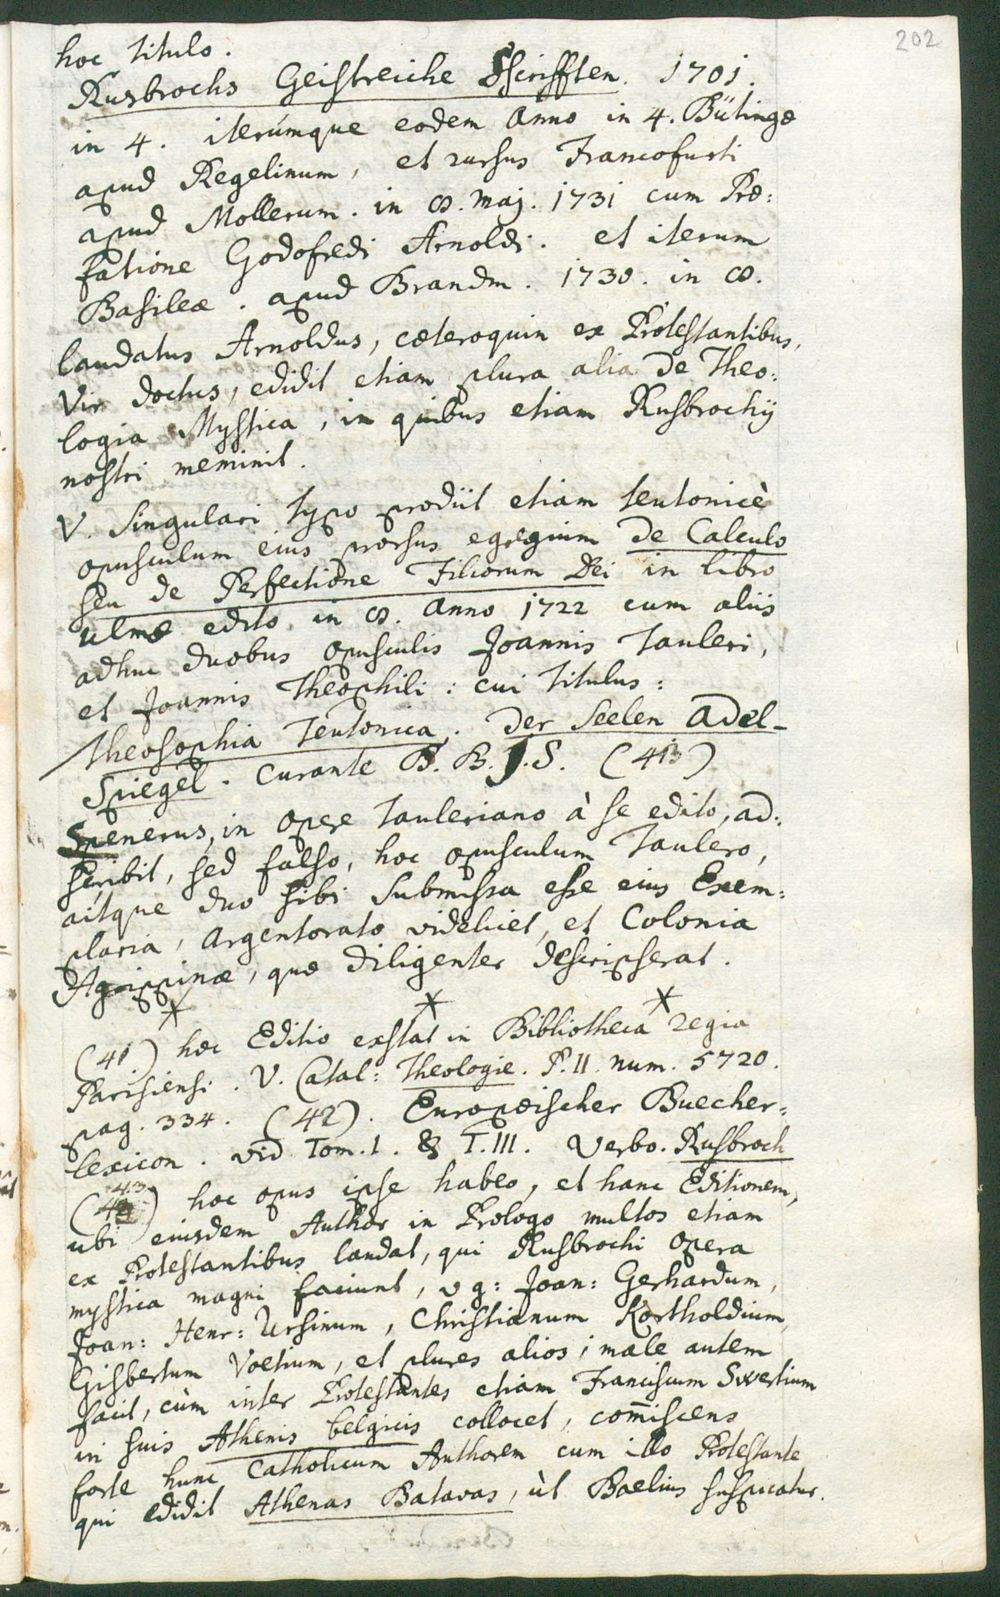 202
hoc titulo.
Rusbrochs Geistreiche Schrifften. 1701.
in 4. iterúmque eodem anno in 4. Bütingæ
apud Regelinum, et rursus Francofurti
apud Mollerum. in 8. maj. 1731 cum Præ:
fatione Godofredi Arnoldi. et iterum
Basileæ. apud Brandm. 1730. in 8.
laudatus Arnoldus, cæteroquin ex Protestantibus,
Vir doctus, edidit etiam plura alia de Theo:
logia Mystica, in quibus etiam Rusbrochij
nostri meminit.
V. Singulari typo prodiit etiam teutonicè
opusculum eius prorsus egregium de Calculo
seu de Perfectione Filiorum Dei in libro
ulmæ edito in 8. anno 1722 cum aliis
adhuc duobus opusculis Joannis Tauleri,
et Joannis Theophili: cui titulus:
Theosophia Teutonica. Der Seelen Adel-
Spiegel. Curante B. B. J. S. (43)
Spenerus, in opere tauleriano à se edito, ad:
scribit, sed falso, hoc opusculum Taulero,
aitque duo sibi submissa esse eius Exem:
plaria, Argentorato videlicet, et Colonia
Agrippinæ, quæ diligenter descripserat.
* * *
(41) hæc Editio exstat in Bibliotheca regia
Parisiensi. V. Catal: Theologie. P. II. num. 5720.
pag. 334. (42). Europæischer Buecher-
lexicon. vid Tom. I. & T. III. verbo. Rusbroch
(43) hoc opus ipse habeo, et hanc Editionem,
ubi eiusdem Author in Prologo multos etiam
ex Protestantibus laudat, qui Rusbrochi opera
mystica magni faciunt, v g: Joan: Gerhardum,
Joan: Henr: Ursinum, Christianum Kortholdium,
Gisbertum Voetium, et plures alios; male autem
facit, cùm inter Protestantes etiam Franciscum Swertium
in suis Athenis belgicis collocet, com̄iscens
forte hunc Catholicum Authorem cum illo Protestante
qui edidit Athenas Batavas, ùt Baelius suspicatur.